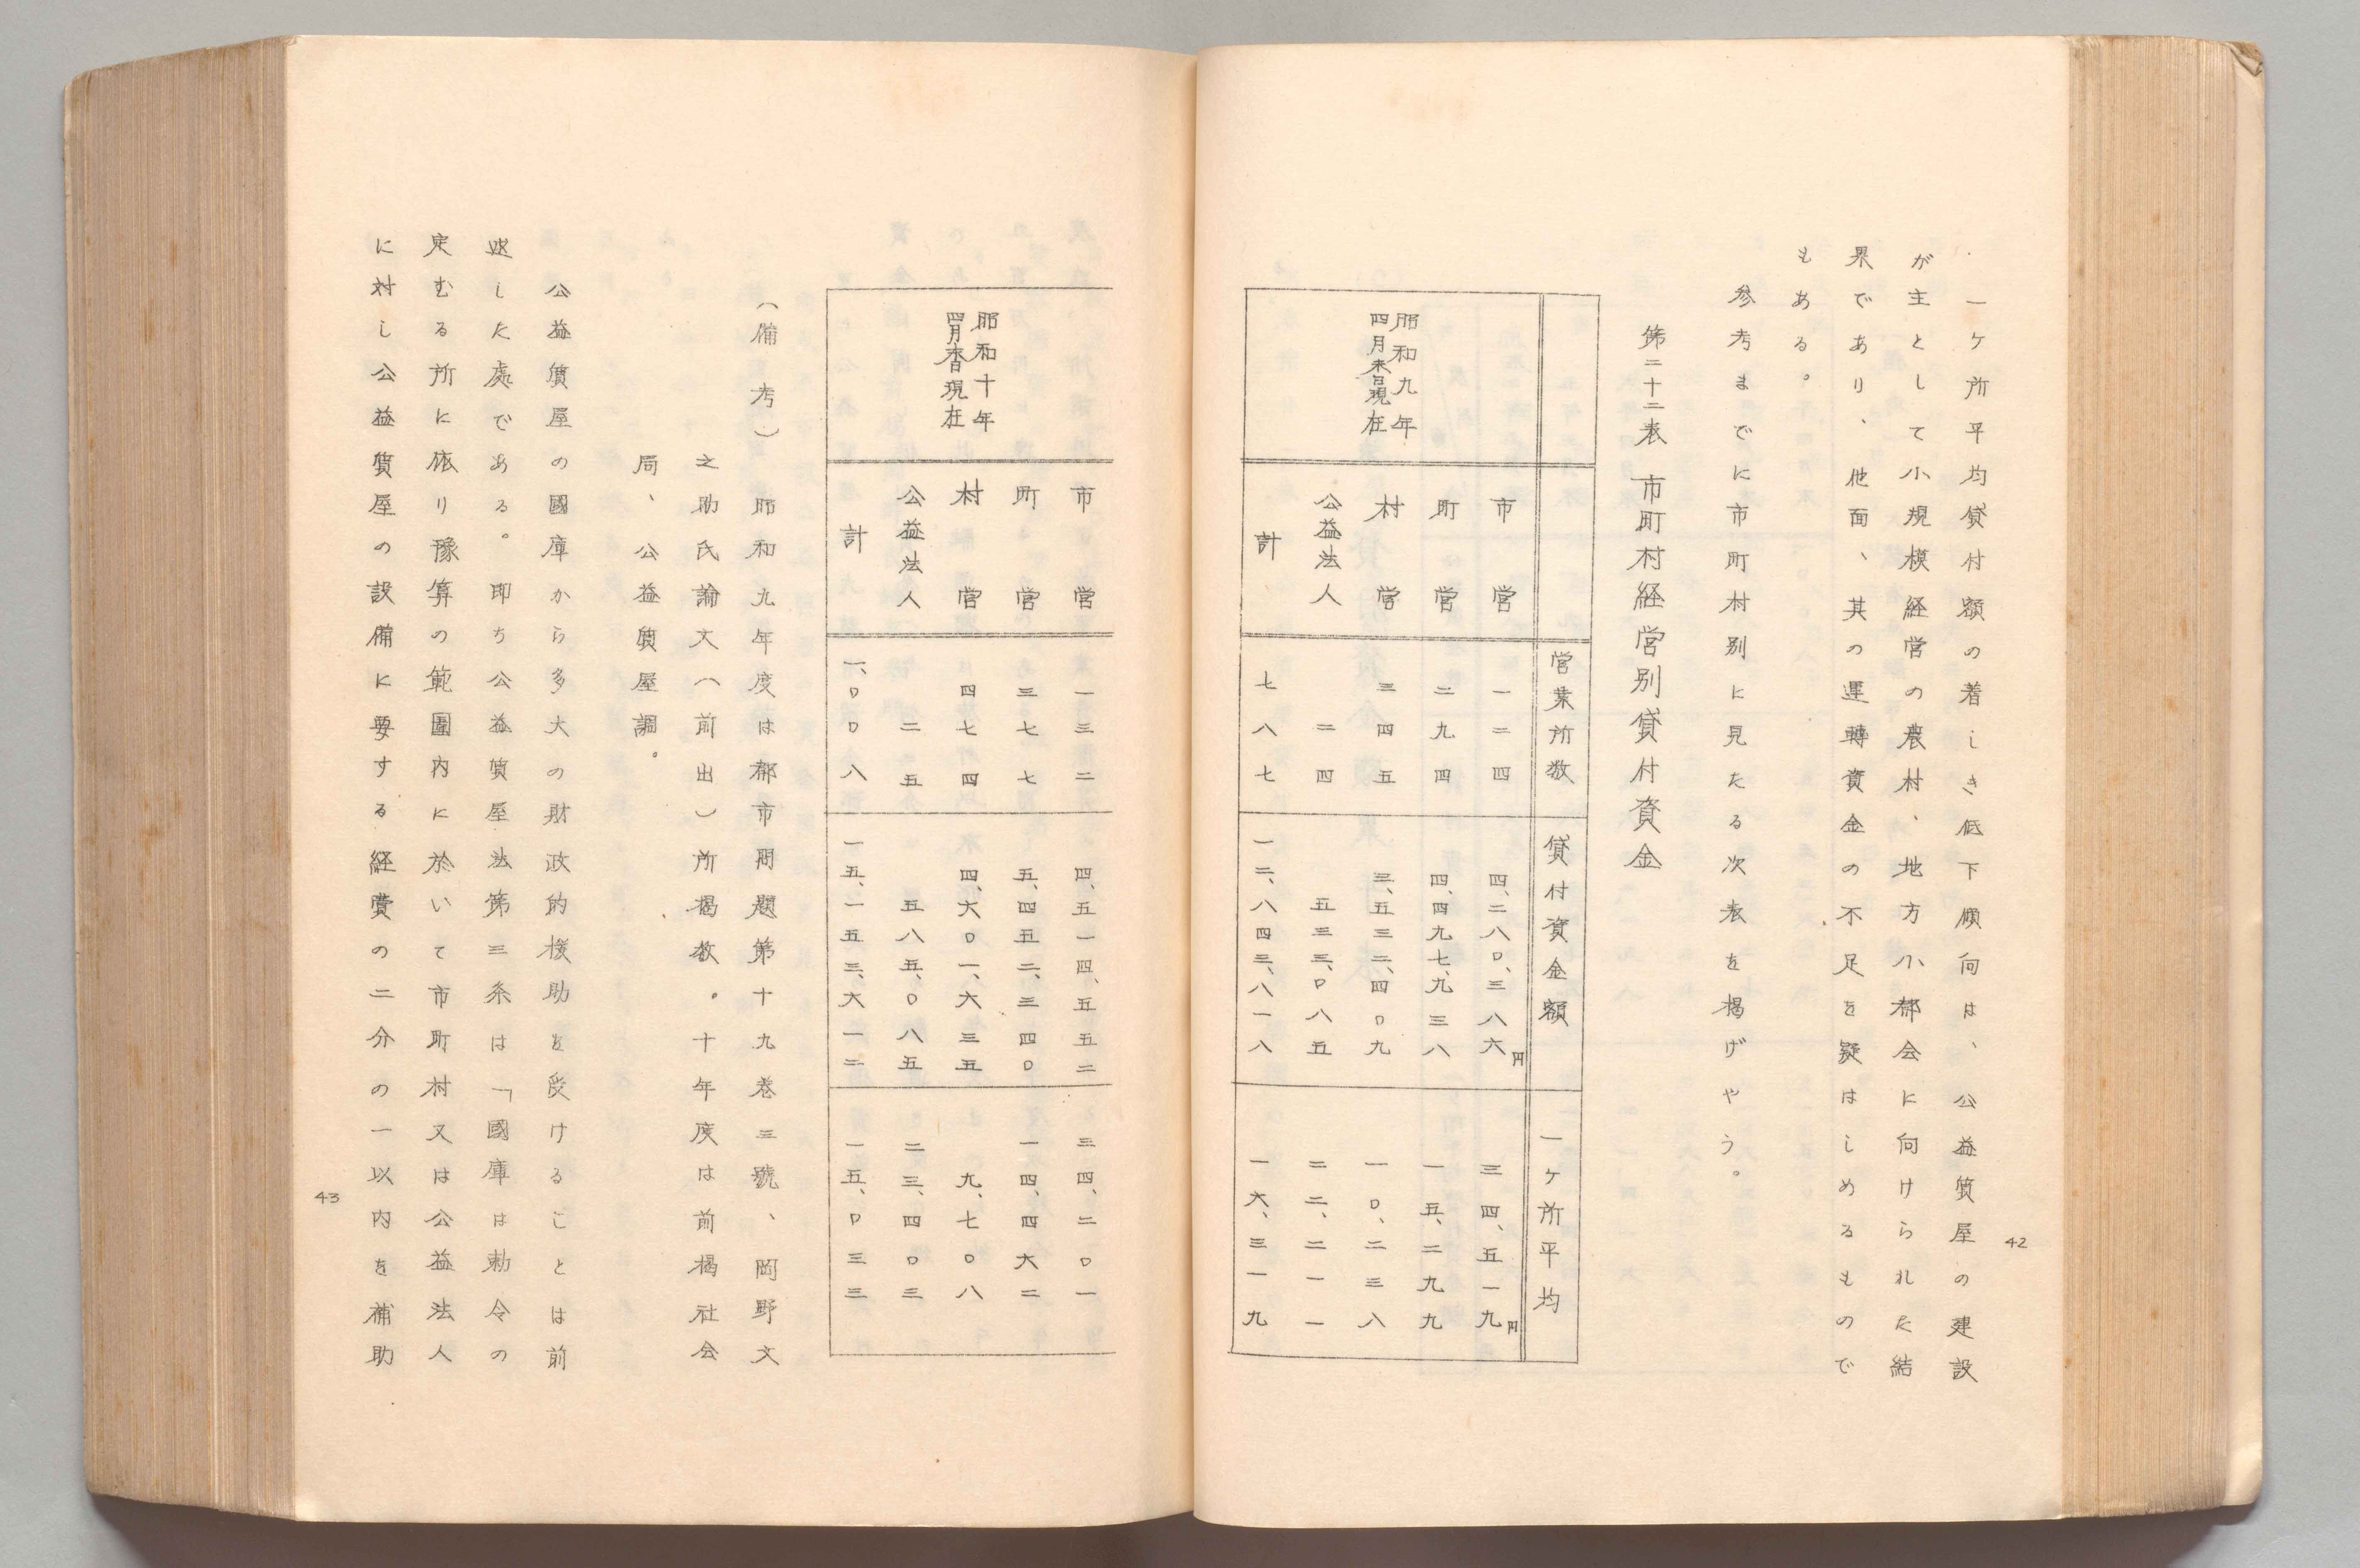 一ケ所平均貸付額の着しき低下傾向は、公益質屋の建設
が主として小規模経営の農村、地方小都会に向けられた結
果であり、他面、其の運轉資金の不足を疑はしめるもので
もある。
参考までに市町村別に見たる次表を掲げやう。
第二十二表 市町村経営別貸付資金
営業所数 貸付資金額 一ケ所平均
昭和九年
四月末日現在
市営 一二四 四、二八〇、三八六円 三四、五一九円
町営 二九四 四、四九七、九三八 一五、二九九
村営 三四五 三、五三二、四〇九 一〇、二三八
公益法人 二四 五三三、〇八五 二二、二一一
計 七八七 一二、八四三、八一八 一六、三一九
42
昭和十年
四月末日現在
市営 一三二 四、五一四、五五二 三四、二〇一
町営 三七七 五、四五二、三四〇 一四、四六二
村営 四七四 四、六〇一、六三五 九、七〇八
公益法人 二五 五八五、〇八五 二三、四〇三
計 一、〇〇八 一五、一五三、六一二 一五、〇三三
(備考) 昭和九年度は都市問題第十九巻三號、岡野文
之助氏論文(前出)所掲数。十年度は前掲社会
局、公益質屋調。
公益質屋の國庫から多大の財政的援助を受けることは前
述した處である。即ち公益質屋法第三条は「國庫は勅令の
定むる所に依り豫算の範圍内に於いて市町村又は公益法人
に対し公益質屋の設備に要する経費の二分の一以内を補助
43